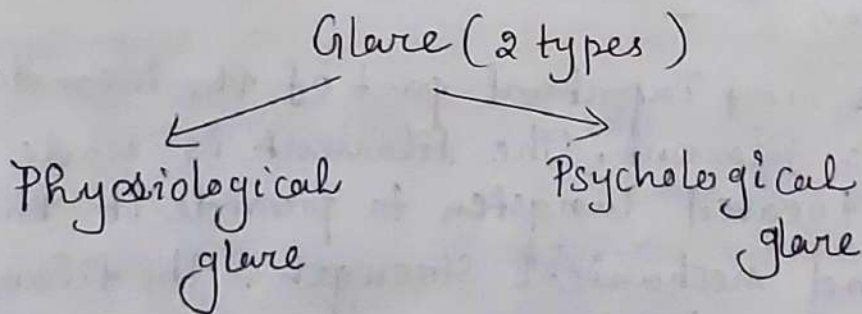 Glare (2 types)
Physiological
glare
Psychological
glare